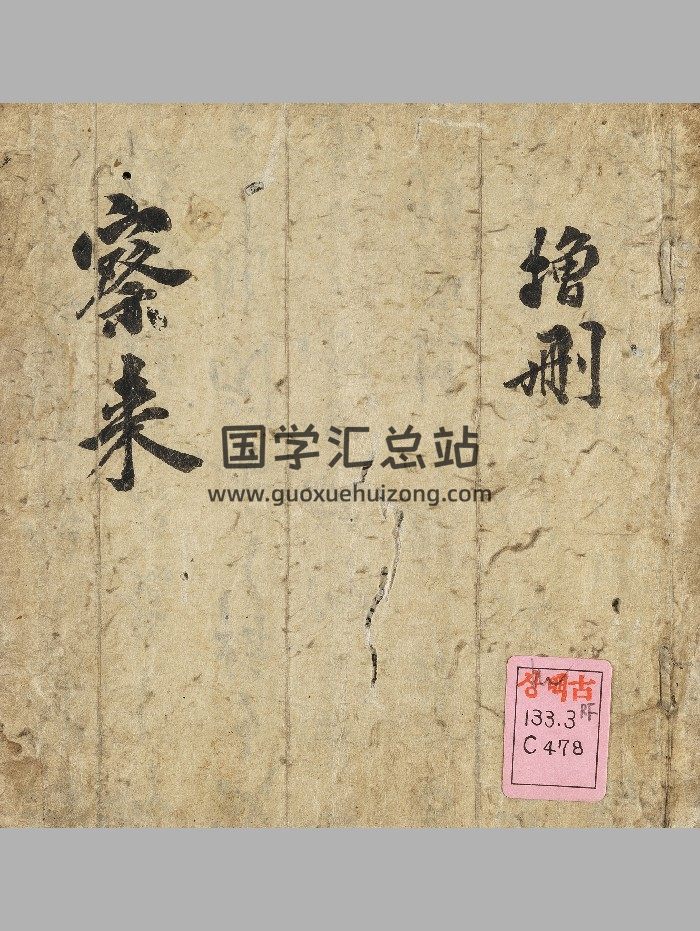 增刪
察来
国学汇总站
www.guoxuehuizong.com
古
133.3 RF
C478